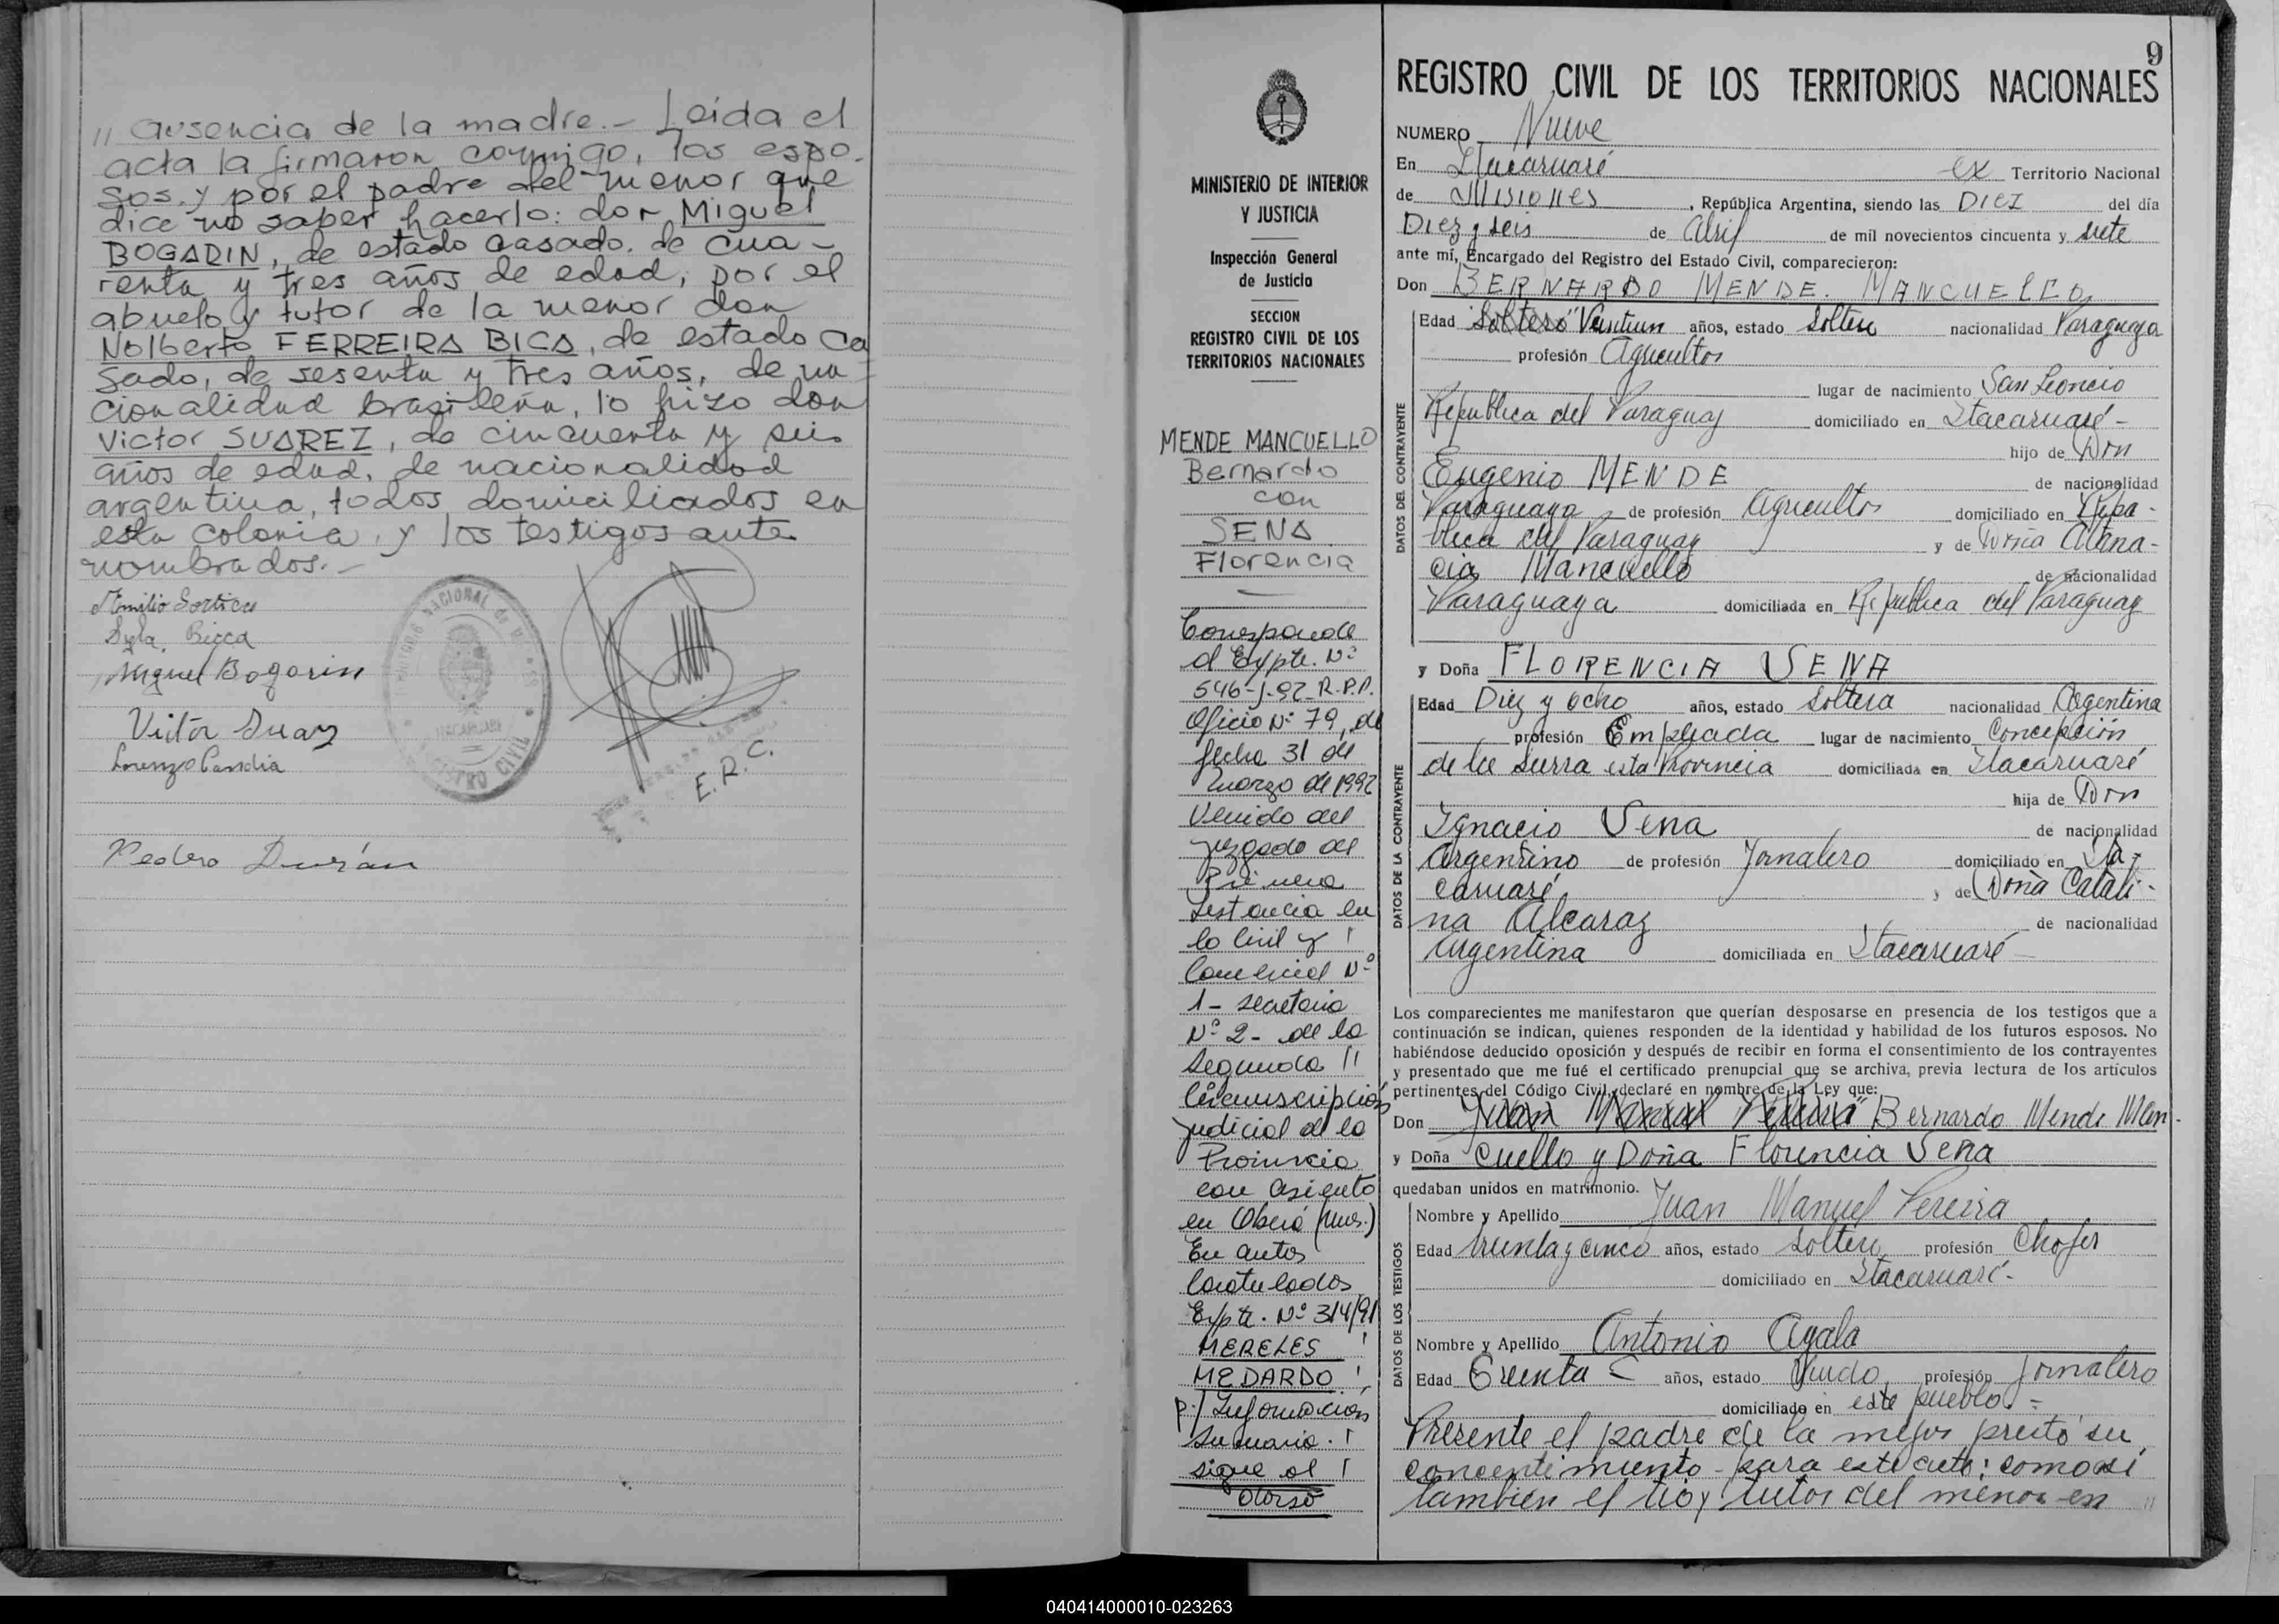 " ausencia de la madre.- Leida el
acta la firmaron conmigo, los espo-
sos. y por el padre del menor que
dice no saber hacerlo: don Miguel
BOGARIN, de estado casado. de cua-
renta y tres años de edad, por el
abuelo y tutor de la menor don
Nolberto FERREIRA BICA, de estado ca
sado, de sesenta y tres años, de na
cionalidad brasileña, lo hizo don
Victor SUAREZ, de cincuenta y seis
años de edad, de nacionalidad
argentina, todos domiciliados en
esta colonia, y los testigos ante
nombrados.-
Emilio
Bicca
Miguel Bogarin
Victor Suarz
Lorenzo Candia
REGISTRO CIVIL
E.R.C.
Pedro Durán
MINISTERIO DE INTERIOR
Y JUSTICIA
Inspección General
de Justicia
SECCION
REGISTRO CIVIL DE LOS
TERRITORIOS NACIONALES
MENDE MANCUELLO
Bernardo
con
SENA
Florencia
Corresponde
al Expte. Nº
546-J-92-R.P.P.
Oficio Nº 79, de
fecha 31 de
marzo de 1992
Venido del
juzgado de
Primera
Instancia en
lo Civil y
Comercial Nº
1- secretaria
Nº 2- de la
Segunda "
Circunscripción
judicial de la
Provincia
con asiento
en Oberá (Mnes.)
En autos
Caratulados
Expte. Nº 314/91
MERELES
MEDARDO
p/ Información
sumaria.
sigue al
dorso
9
REGISTRO CIVIL DE LOS TERRITORIOS NACIONALES
NUMERO Nueve
En Itacaruaré ex Territorio Nacional
de Misiones, República Argentina, siendo las DIEZ del día
Diez y seis de Abril de mil novecientos cincuenta y siete
ante mí, Encargado del Registro del Estado Civil, comparecieron:
Don BERNARDO MENDE. MANCUELLO
DATOS DEL CONTRAYENTE
Edad Soltero" Veintiun años, estado Soltero nacionalidad Paraguaya
profesión Agricultor
lugar de nacimiento San Leoncio
Republica del Paraguay domiciliado en Itacaruaré-
hijo de Don
Eugenio MENDE de nacionalidad
Paraguaya de profesión Agricultor domiciliado en Repu-
blica del Paraguay y de Doña Atana-
cia Mancuello de nacionalidad
Paraguaya domiciliada en Republica del Paraguay
y Doña FLORENCIA SENA
DATOS DE LA CONTRAYENTE
Edad Diez y ocho años, estado soltera nacionalidad Argentina
profesión Empleada lugar de nacimiento Concepción
de la Sierra esta Provincia domiciliada en Itacaruaré
hija de Don
Ignacio Sena de nacionalidad
Argentino de profesión Jornalero domiciliado en Ita-
caruaré, y de Doña Catali-
na Alcaraz de nacionalidad
Argentina domiciliada en Itacaruaré-
Los comparecientes me manifestaron que querían desposarse en presencia de los testigos que a
continuación se indican, quienes responden de la identidad y habilidad de los futuros esposos. No
habiéndose deducido oposición y después de recibir en forma el consentimiento de los contrayentes
y presentado que me fué el certificado prenupcial que se archiva, previa lectura de los artículos
pertinentes del Código Civil, declaré en nombre de la Ley que:
Don Juan Manuel Pereira" Bernardo Mende Man-
y Doña cuello y Doña Florencia Sena
quedaban unidos en matrimonio.
DATOS DE LOS TESTIGOS
Nombre y Apellido Juan Manuel Pereira
Edad treinta y cinco años, estado soltero profesión Chofer
domiciliado en Itacaruaré-
Nombre y Apellido Antonio Ayala
Edad años, estado Viudo, profesión Jornalero
domiciliado en este pueblo.-
Presente el padre de la prestó su
concentimiento para este acto; como así
tambien el tio y tutor del menor en "
040414000010-023263